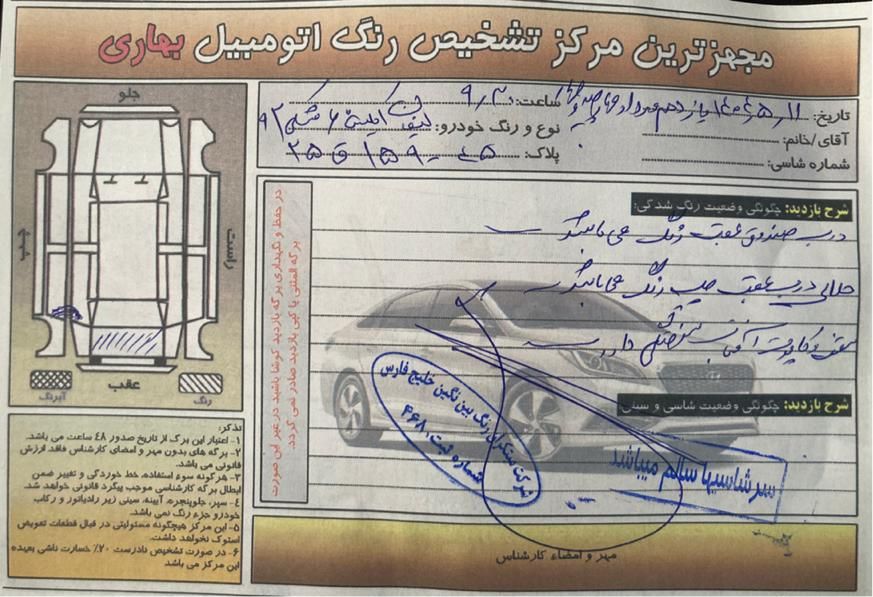 مجهزترین مرکز تشخیص رنگ اتومبیل بهاری
تاریخ: ۱۴۰۴/۵/۱۱ یازدهم مرداد
ساعت: ۹/۳۰
آقای/خانم:
نوع و رنگ خودرو: لیفان
شماره شاسی:
پلاک:
جلو
راست
چپ
عقب
رنگ
آبرنگ
در حفظ و نگهداری برگه بازدید کوشا باشید در غیر این صورت
برگه المثنی یا کپی بازدید صادر نمی گردد.
شرح بازدید: چگونگی وضعیت رنگ شدگی:
درب صندوق عقب رنگ می باشد
حلالی درب عقب چپ رنگ می باشد
سقف و کاپوت آفتاب سوختگی دارد
شرح بازدید: چگونگی وضعیت شاسی و سینی:
سرشاسیها سالم میباشد
شرکت سنگران رنگ بین نگین خلیج فارس
شماره ثبت ۴۶۸۱
مهر و امضاء کارشناس
تذکر:
۱- اعتبار این برگ از تاریخ صدور ۴۸ ساعت می باشد.
۲- برگه های بدون مهر و امضای کارشناس فاقد ارزش
قانونی می باشد.
۳- هرگونه سوء استفاده، خط خوردگی و تغییر ضمن
ابطال برگه کارشناسی موجب پیگرد قانونی خواهد شد.
۴- سپر، جلوپنجره، آیینه، سینی زیر رادیاتور و رکاب
خودرو جزء رنگ نمی باشد.
۵- این مرکز هیچگونه مسئولیتی در قبال قطعات تعویض
استوک نخواهد داشت.
۶- در صورت تشخیص نادرست ۲۰٪ خسارت ناشی بعهده
این مرکز می باشد